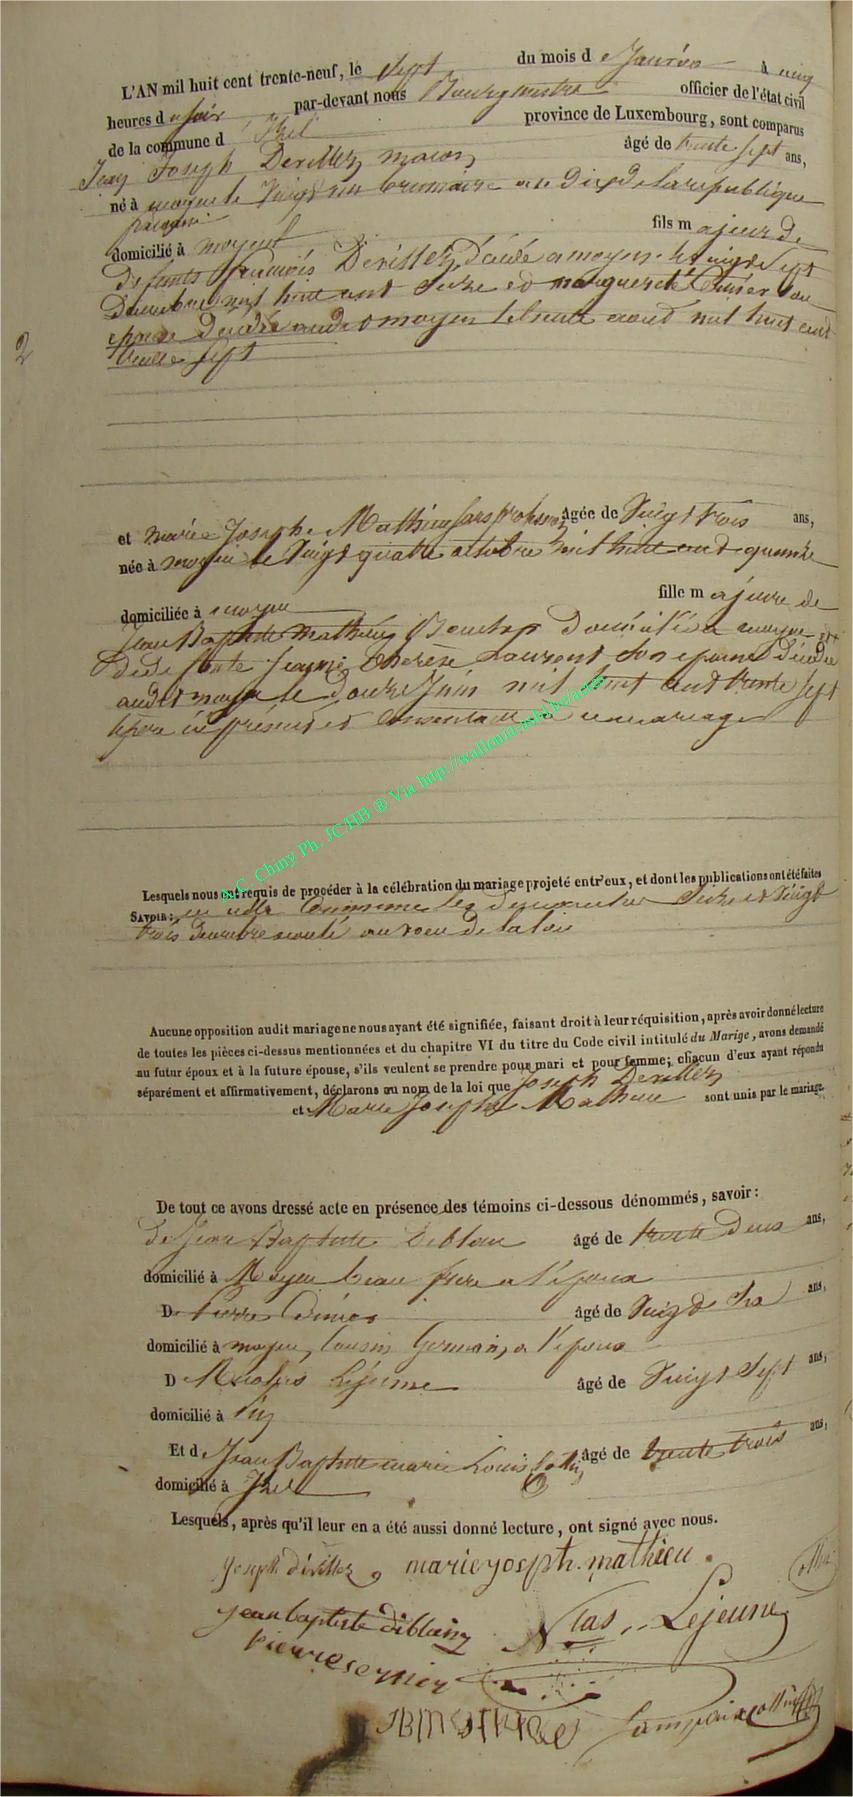 L'AN mil huit cent trente-neuf, le sept du mois de Janvier à cinq
heures du soir par-devant nous Bourgmestre officier de l'état civil
de la commune d'Izel province de Luxembourg, sont comparus
Jean Joseph Devillez, maçon, âgé de trente sept ans,
né à moyen le Vingt un brumaire an Dix de la république
française
domicilié à moyen fils majeur de
défunts françois Devillez, décédé a moyen le vingt sept
Décembre mil huit cent seize et marguerite son
épouse décédée audit moyen le trente aout mil huit cent
trente sept
2
et marie Joseph Mathieu sans profession, âgée de Vingt trois ans,
née à moyen le Vingt quatre octobre mil huit cent quinze
domiciliée à moyen fille majeure de
Jean Baptiste mathieu, domicilié a moyen et
de defunte Jeanne Therèse Laurent son épouse décédée
audit moyen le Douze Juin mil huit cent trente sept
le père ici présent et consentant a ce mariage
A.C. Chiny Ph. JCHB ® Via http://wallonia-asbl.be/ac
Lesquels nous ont requis de procéder à la célébration du mariage projeté entr'eux, et dont les publications ont été faites
SAVOIR: en cette Commune les dimanches Seize et Vingt
trois décembre écoulé au voeu de la loi
Aucune opposition audit mariage ne nous ayant été signifiée, faisant droit à leur réquisition, après avoir donné lecture
de toutes les pièces ci-dessus mentionnées et du chapitre VI du titre du Code civil intitulé du Marige, avons demandé
au futur époux et à la future épouse, s'ils veulent se prendre pour mari et pour femme; chacun d'eux ayant répondu
séparément et affirmativement, déclarons au nom de la loi que Joseph Devillez
et Marie Joseph Mathieu sont unis par le mariage.
De tout ce avons dressé acte en présence des témoins ci-dessous dénommés, savoir:
De Jean Baptiste Deblain âgé de trente Deux ans,
domicilié à Moyen beau frère a l'époux
D Pierre âgé de Vingt ans,
domicilié à moyen, Cousin Germain, a l'époux
D Nicolas Lejeune âgé de Vingt Sept ans,
domicilié à
Et d Jean Baptiste marie Louis âgé de trente trois ans,
domicilié à Izel
Lesquels, après qu'il leur en a été aussi donné lecture, ont signé avec nous.
Joseph dévillez marie yoseph. mathieu.
jean baptiste diblain Nlas Lejeune
pierre
JB